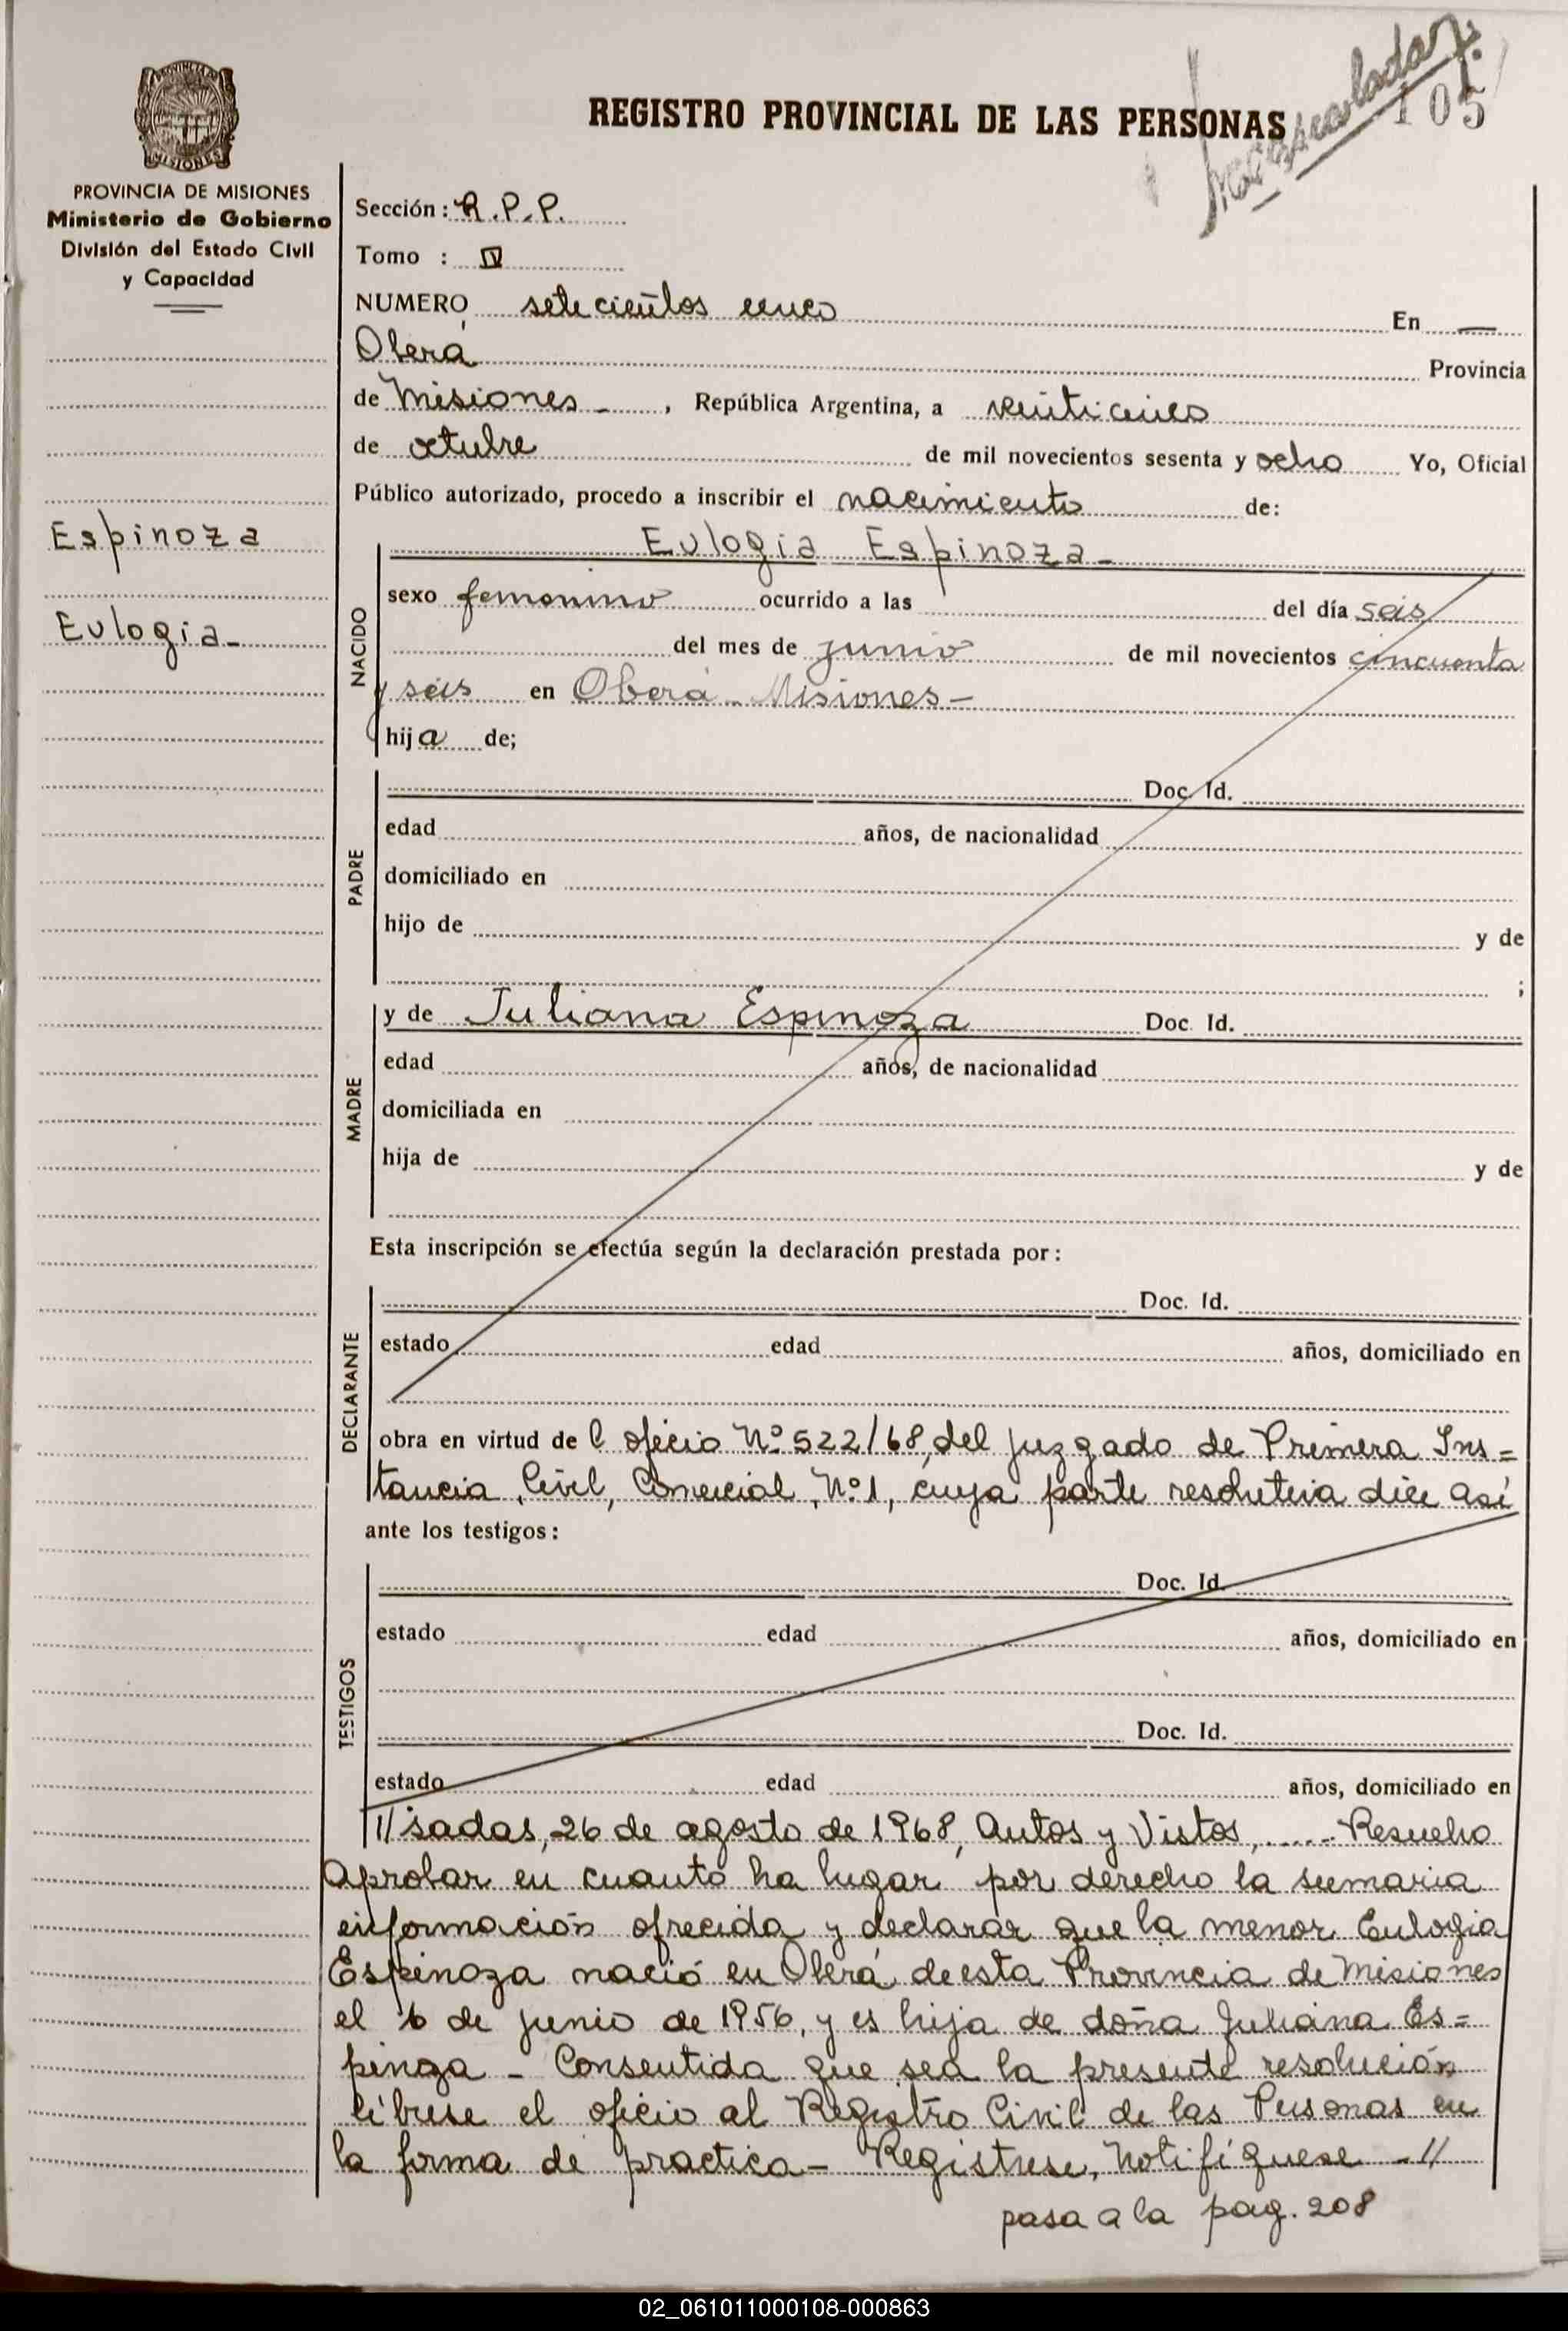 PROVINCIA DE MISIONES
REGISTRO PROVINCIAL DE LAS PERSONAS
105
PROVINCIA DE MISIONES
Ministerio de Gobierno
División del Estado Civil
y Capacidad
Espinoza
Eulogia-
Sección: R.P.P.
Tomo : IV
NUMERO setecientos cinco En —
Oberá Provincia
de Misiones - , República Argentina, a veinticinco
de octubre de mil novecientos sesenta y ocho Yo, Oficial
Público autorizado, procedo a inscribir el nacimiento de:
NACIDO
Eulogia Espinoza-
sexo femenino ocurrido a las del día seis
del mes de junio de mil novecientos cincuenta
y seis en Oberá - Misiones-
hija de;
PADRE
Doc. Id.
edad años, de nacionalidad
domiciliado en
hijo de y de
;
MADRE
y de Juliana Espinoza Doc. Id.
edad años, de nacionalidad
domiciliada en
hija de y de
Esta inscripción se efectúa según la declaración prestada por:
DECLARANTE
Doc. Id.
estado edad años, domiciliado en
obra en virtud del oficio Nº 522/68, del juzgado de Primera Ins=
tancia, Civil, Comercial, Nº 1, cuya parte resolutiva dice así
ante los testigos:
TESTIGOS
Doc. Id.
estado edad años, domiciliado en
Doc. Id.
estado edad años, domiciliado en
//sadas, 26 de agosto de 1968, Autos y Vistos, ..... Resuelvo
Aprobar en cuanto ha lugar por derecho la sumaria
información ofrecida y declarar que la menor Eulogia
Espinoza nació en Oberá de esta Provincia de Misiones
el 6 de junio de 1956, y es hija de doña Juliana Es=
pinoza - Consentida que sea la presente resolución
líbrese el oficio al Registro Civil de las Personas en
la forma de practica - Registrese, Notifíquese -//
pasa a la pag. 208
02_061011000108-000863